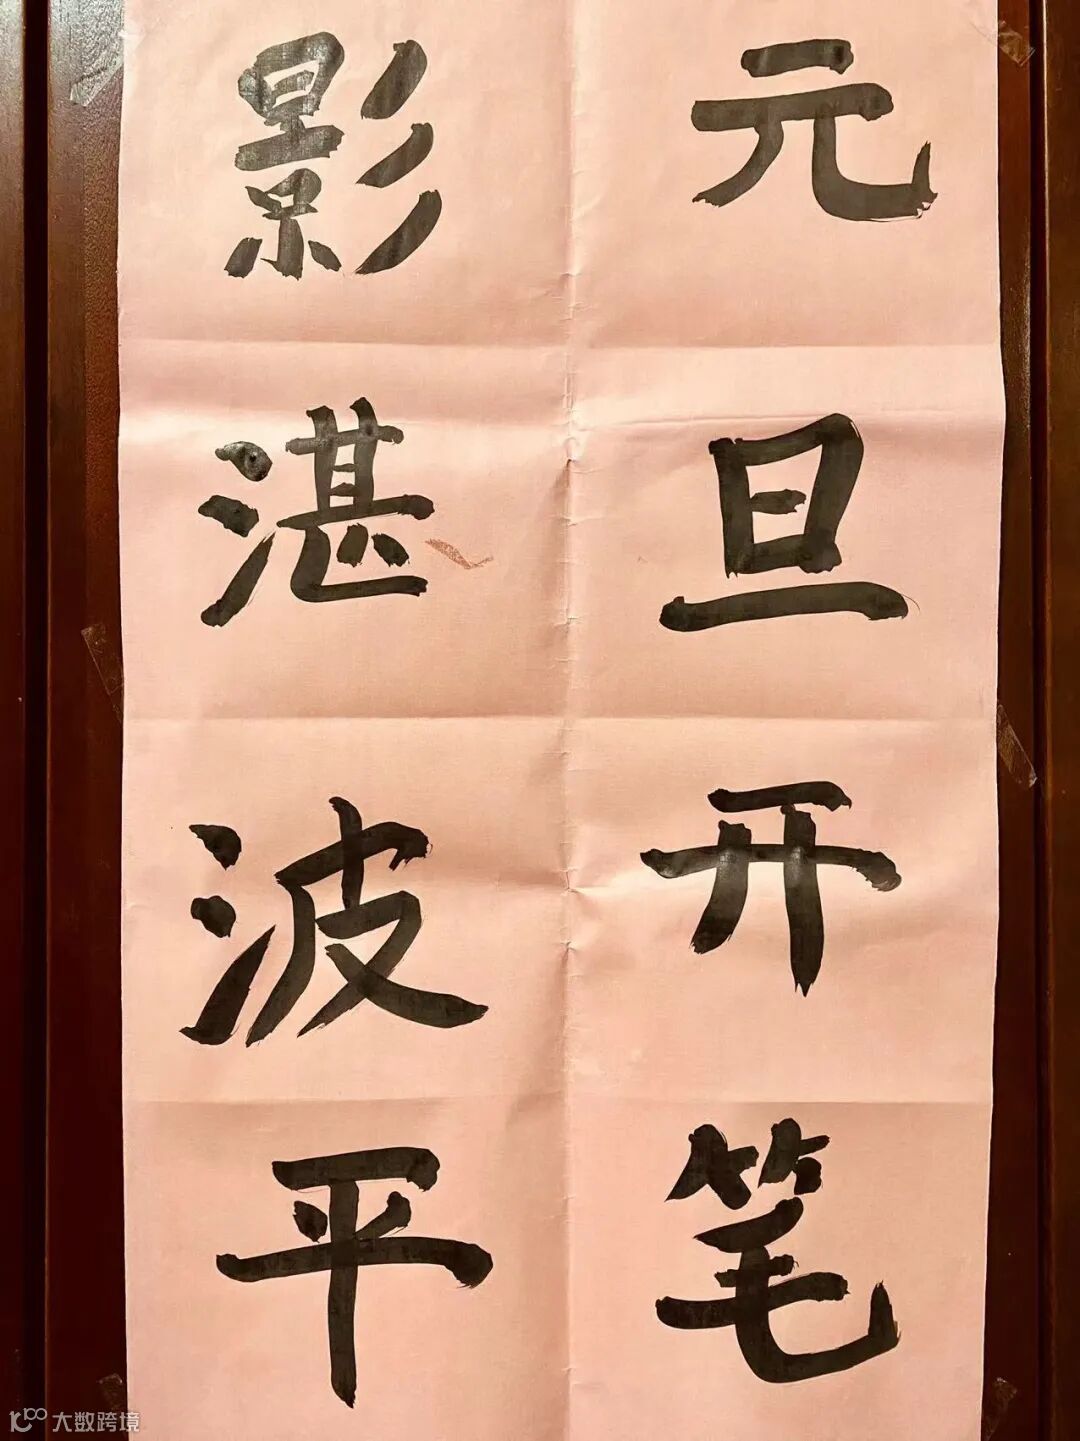 元旦开笔
影湛波平
大数跨境